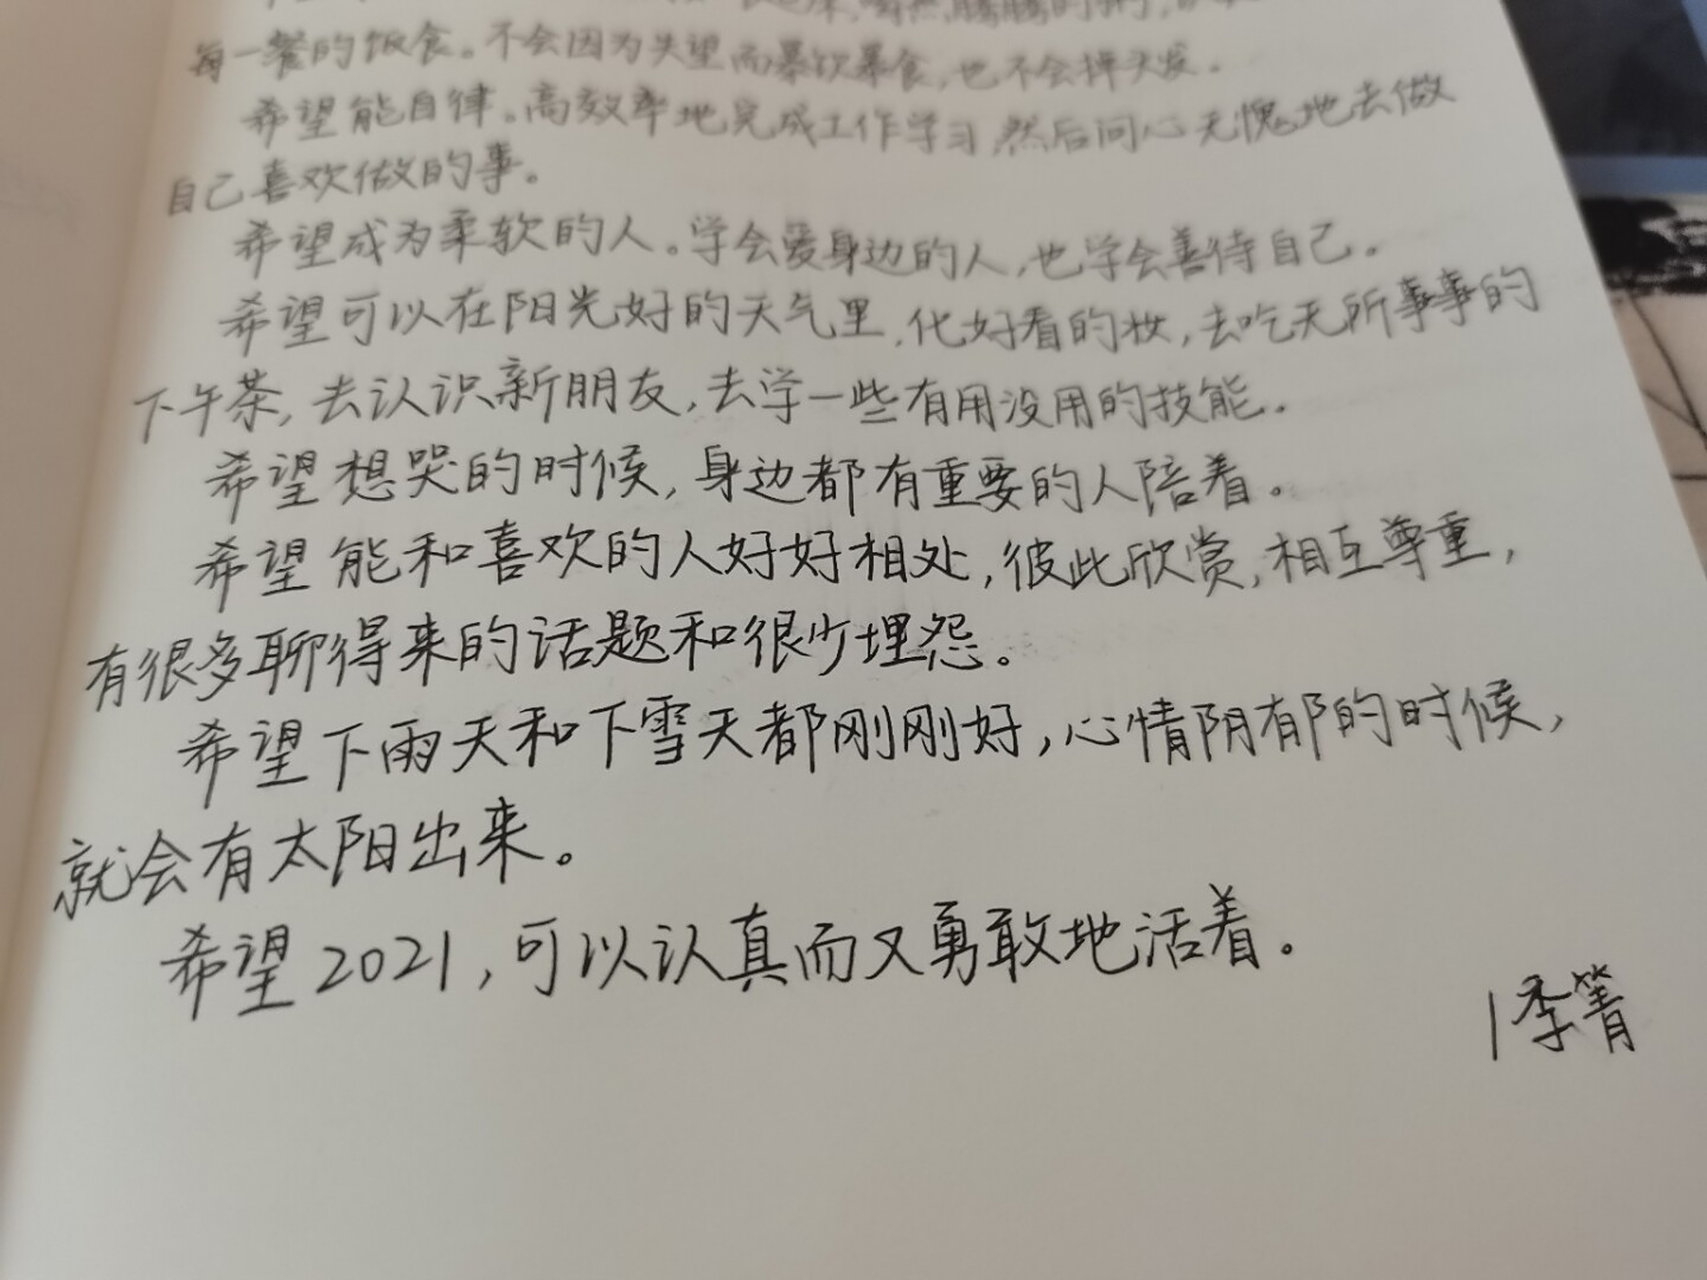 每一餐的饭食。不会因为失望而暴饮暴食,也不会掉头发.
希望能自律。高效率地完成工作学习,然后问心无愧地去做
自己喜欢做的事。
希望成为柔软的人。学会爱身边的人,也学会善待自己.
希望可以在阳光好的天气里,化好看的妆,去吃无所事事的
下午茶,去认识新朋友,去学一些有用没用的技能.
希望想哭的时候,身边都有重要的人陪着。
希望能和喜欢的人好好相处,彼此欣赏,相互尊重,
有很多聊得来的话题和很少埋怨。
希望下雨天和下雪天都刚刚好,心情阴郁的时候,
就会有太阳出来。
希望2021,可以认真而又勇敢地活着。
|季箐